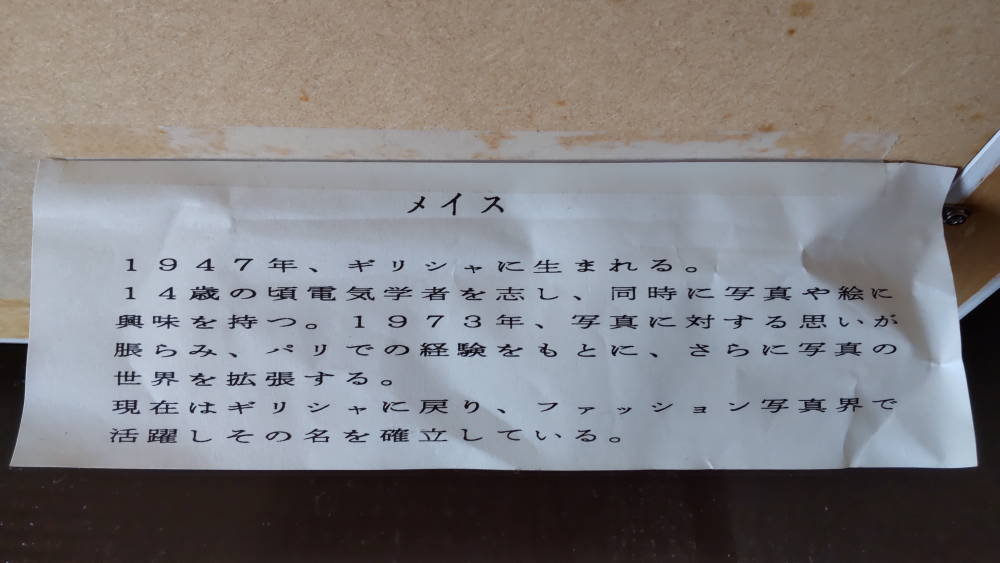 メイス
1947年、ギリシャに生まれる。
14歳の頃電気学者を志し、同時に写真や絵に
興味を持つ。1973年、写真に対する思いが
脹らみ、パリでの経験をもとに、さらに写真の
世界を拡張する。
現在はギリシャに戻り、ファッション写真界で
活躍しその名を確立している。